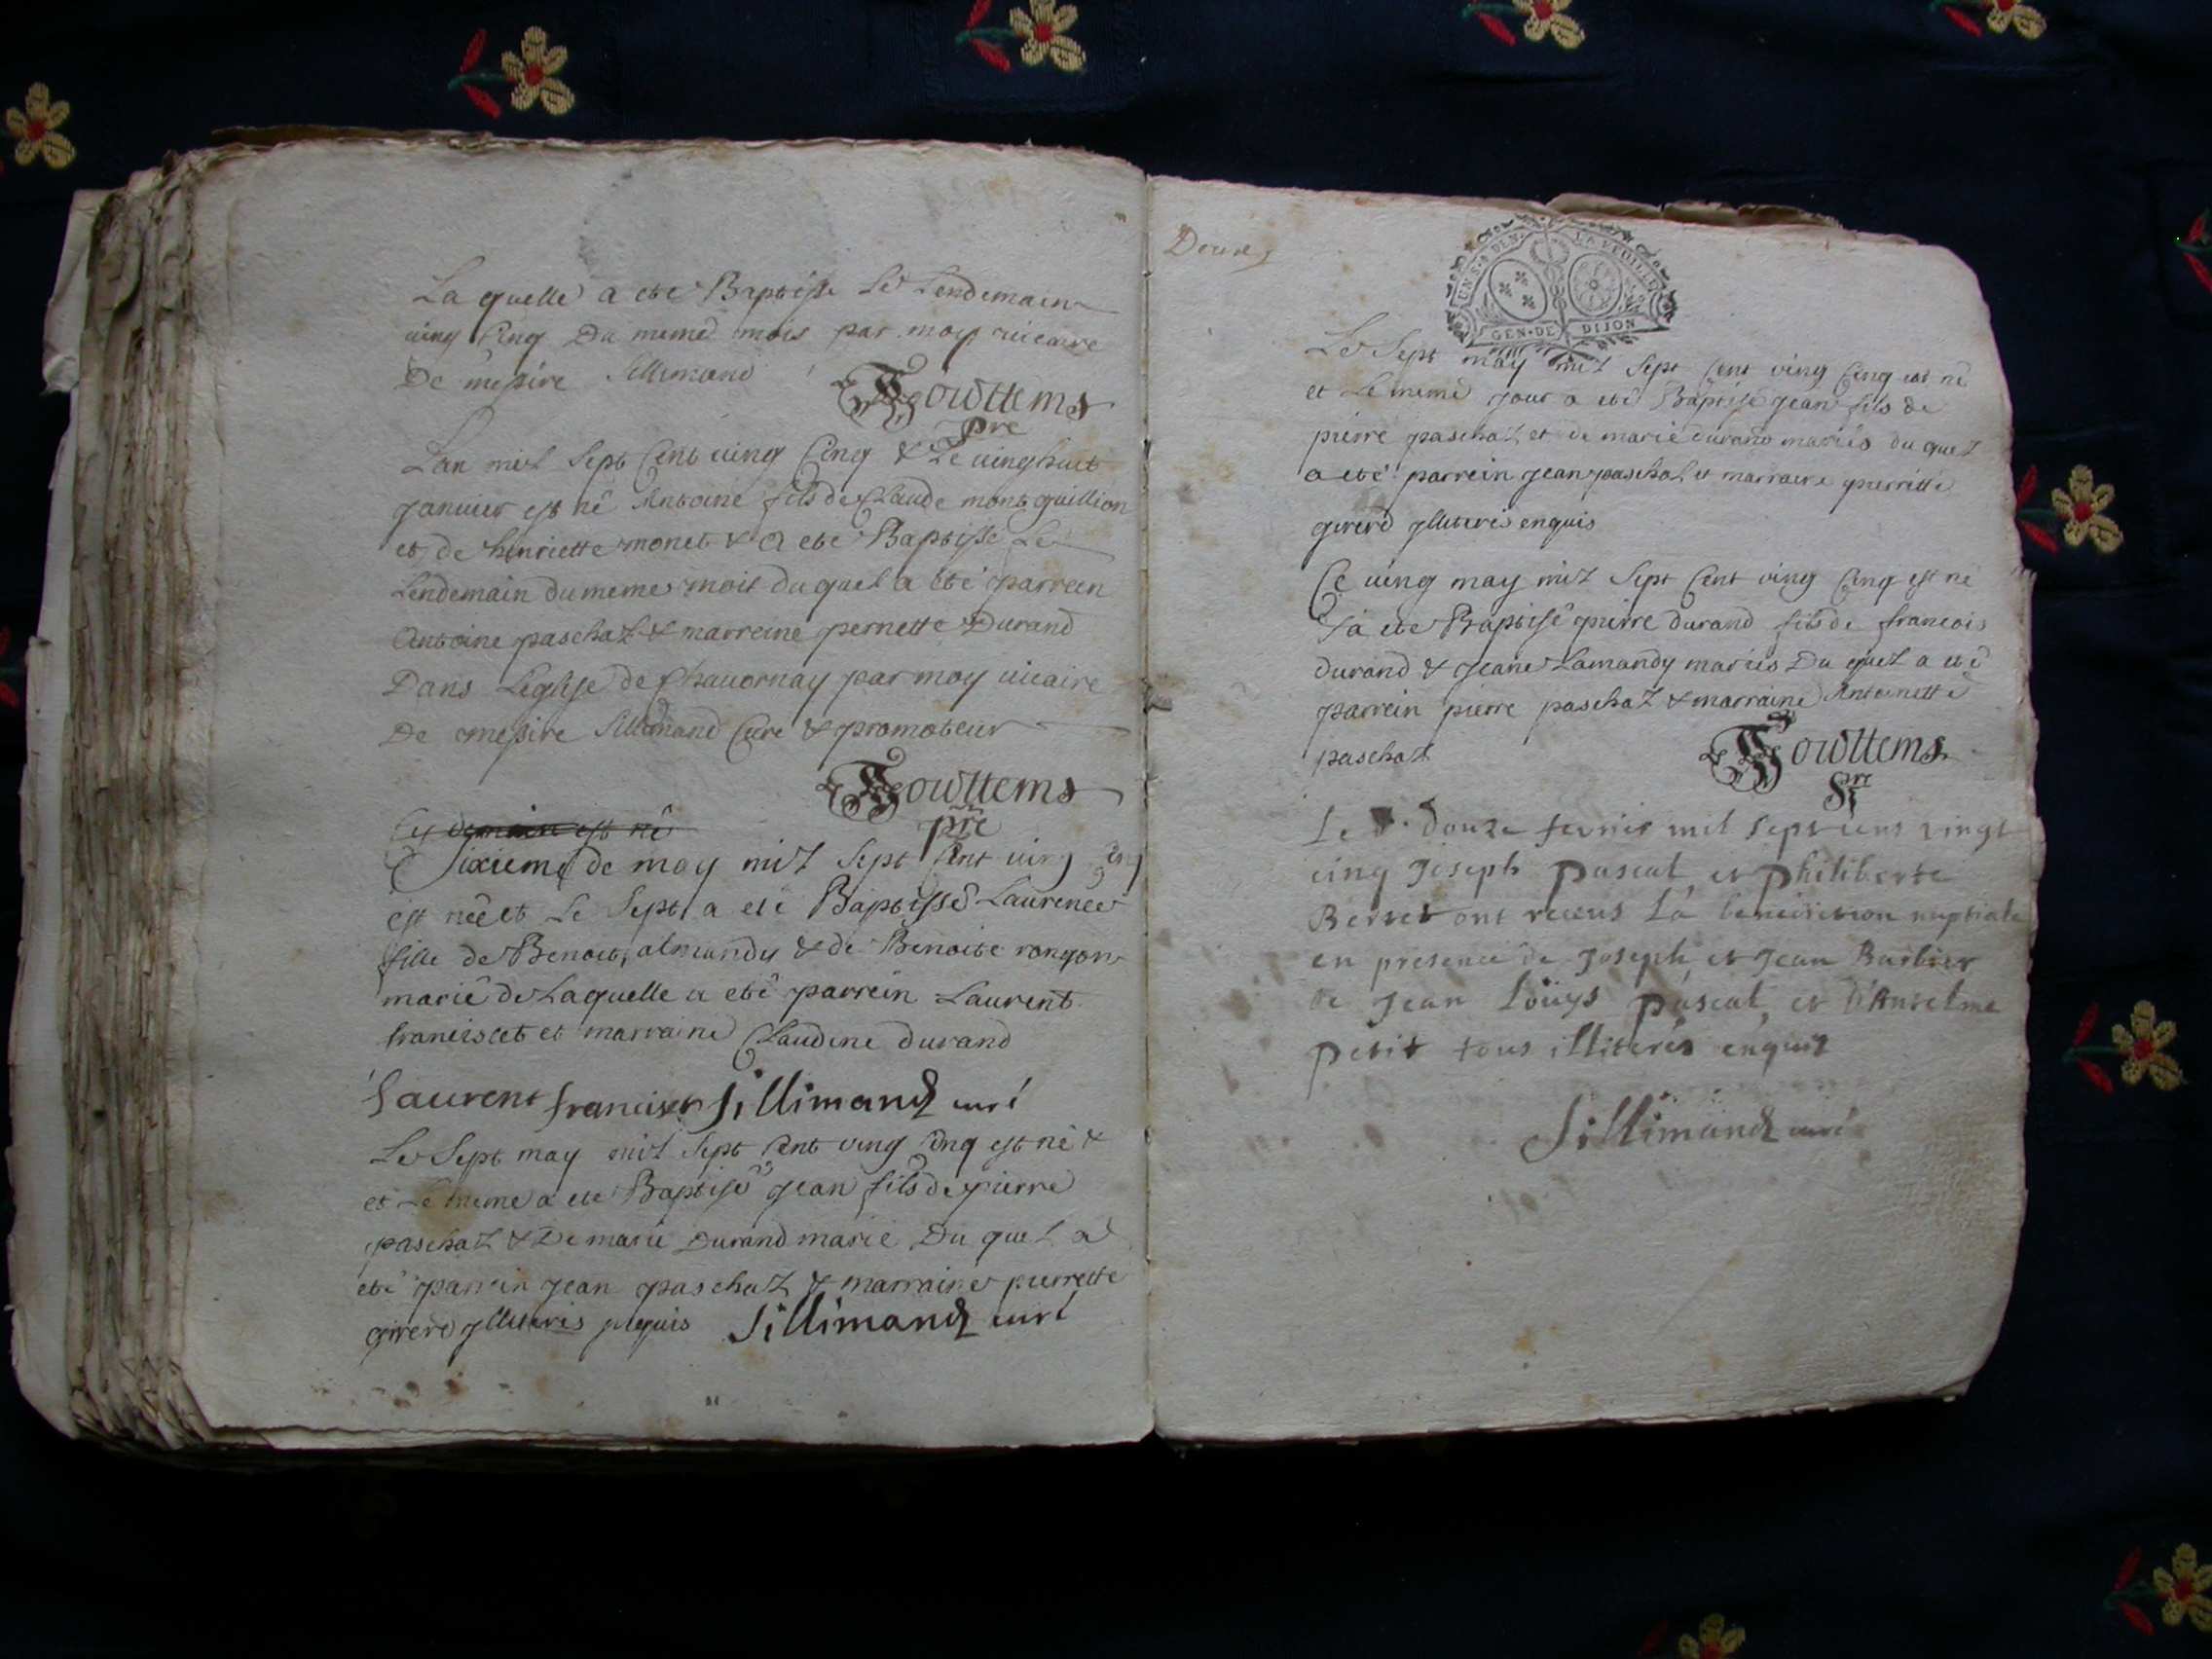 La quelle a eté Baptisse Le Lendemain
ving Cinq Du meme mois par moy vicaire
De messire Sillimand
Gowttems
pre
Lan mil Sept Cent ving Cinq & Le vinghuit
janvier est né Antoine fils de Claude montguillion
et de henriette monet & a eté Baptisse Le
Lendemain du meme mois du quel a eté parrein
Antoine paschal & marreine pernette Durand
Dans Leglise de Chavornay par moy vicaire
De messire Sillimand Curé & promoteur
Gowttems
pre
est né
Sixieme de may mil Sept Cent ving cinq
est née et Le Sept a eté Baptissé Laurence
fille de Benoit almandy & de Benoite rongon
marié de Laquelle a eté parrein Laurent
franciscet et marraine Claudine durand
Laurent franciset Sillimand curé
Le Sept may mil Sept Cent ving Cinq est né &
et Le meme a eté Baptisé jean fils de pierre
paschal & De marie Durand marié Du quel a
eté parrein jean paschal & marraine pierrette
girerd jlliteris enquis Sillimand curé
Douze
UN S. 4 DEN. LA FEUILLE
GEN. DE DIJON
Le Sept may mil Sept Cent ving Cinq est né
et Le meme jour a eté Baptisé jean fils de
pierre paschal et de marie durand mariés du quel
a eté parrein jean paschal et marraine pierrette
girerd jlliteris enquis
Ce ving may mil Sept Cent ving Cinq est né
& a eté Baptisé pierre durand fils de francois
durand & jeane Lamandy mariés Du quel a eté
parrein pierre paschal & marraine Antoinette
paschal
Gowttems
pre
Le douze fevrier mil sept cens vingt
cinq Joseph Pascal et Philiberte
Berret ont receus La benediction nuptiale
en presence de Joseph et Jean Barbier
de Jean Loüys Pascal, et D'Anselme
Petit tous illiterés enquis
Sillimand curé